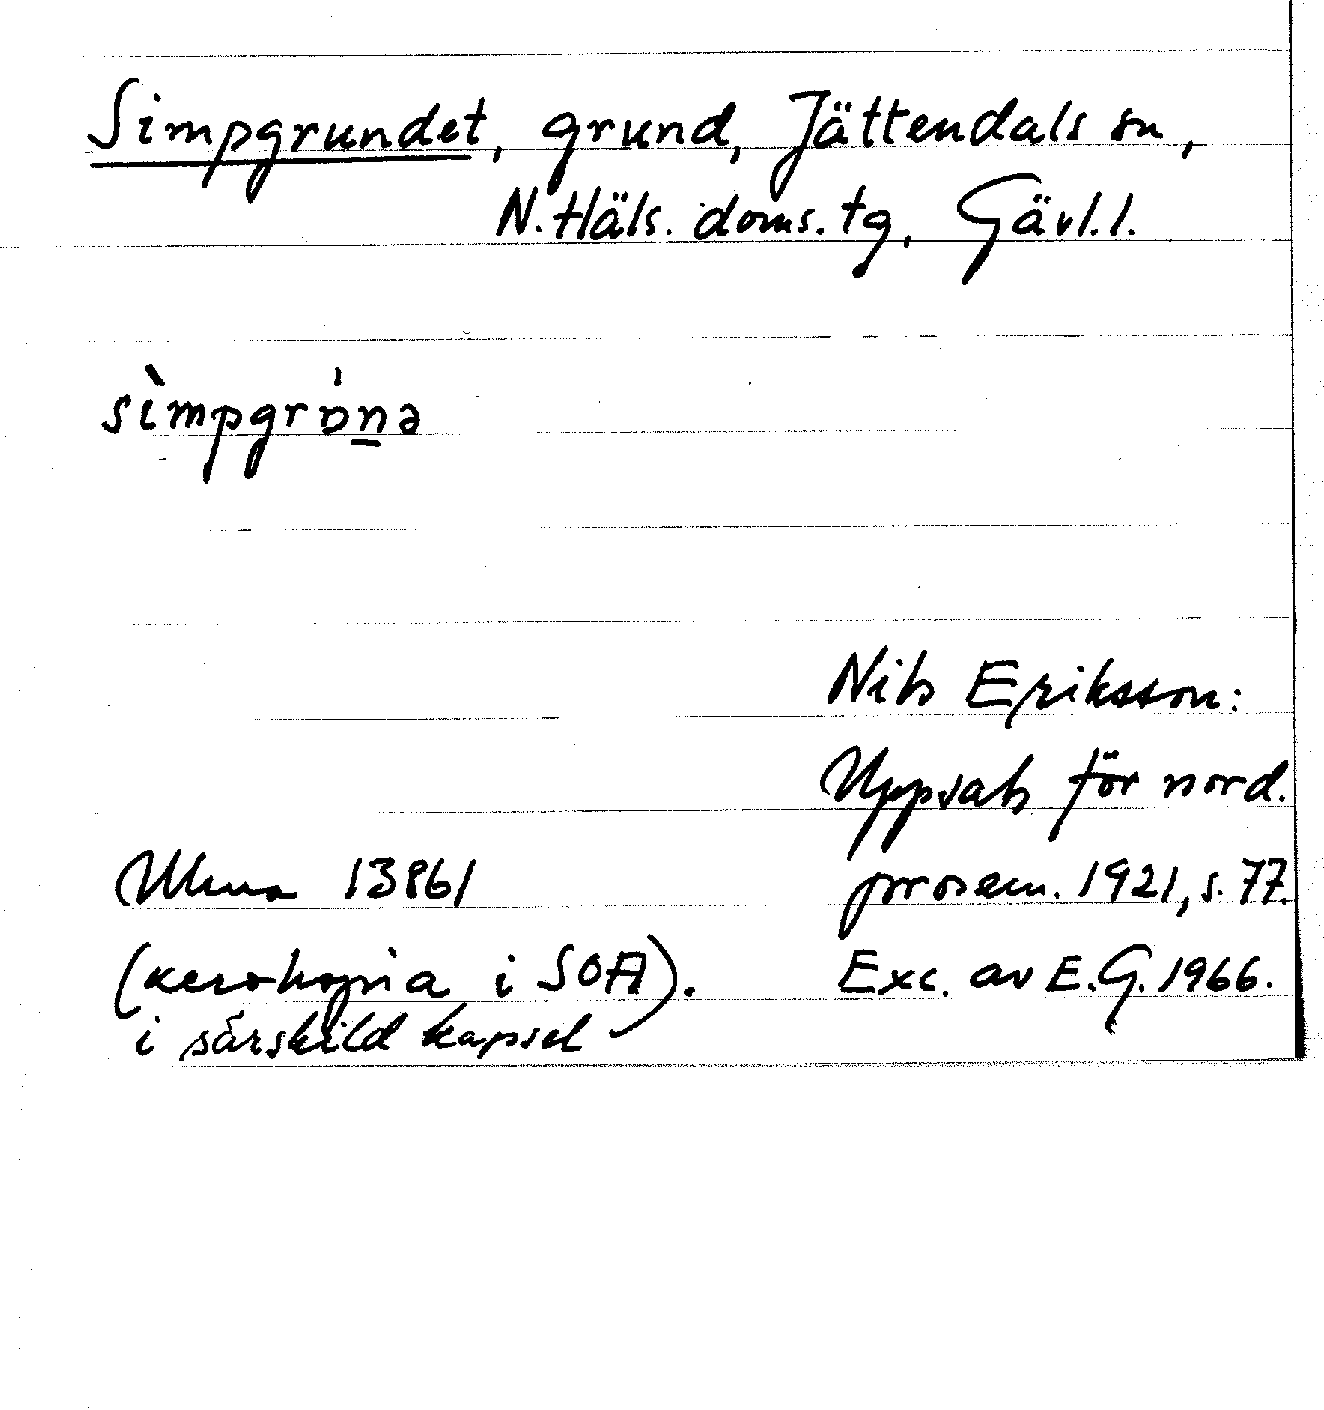 Simpgrundet, grund, Jättendals sn,
N. Häls. doms. tg, Gävl. l.
sìmpgrɒ́n̲ə
Nils Eriksson:
Uppsats för nord.
Ulma 13861
prosem. 1921, s. 77.
(xerokopia i SOA).
Exc. av E.G. 1966.
i särskild kapsel